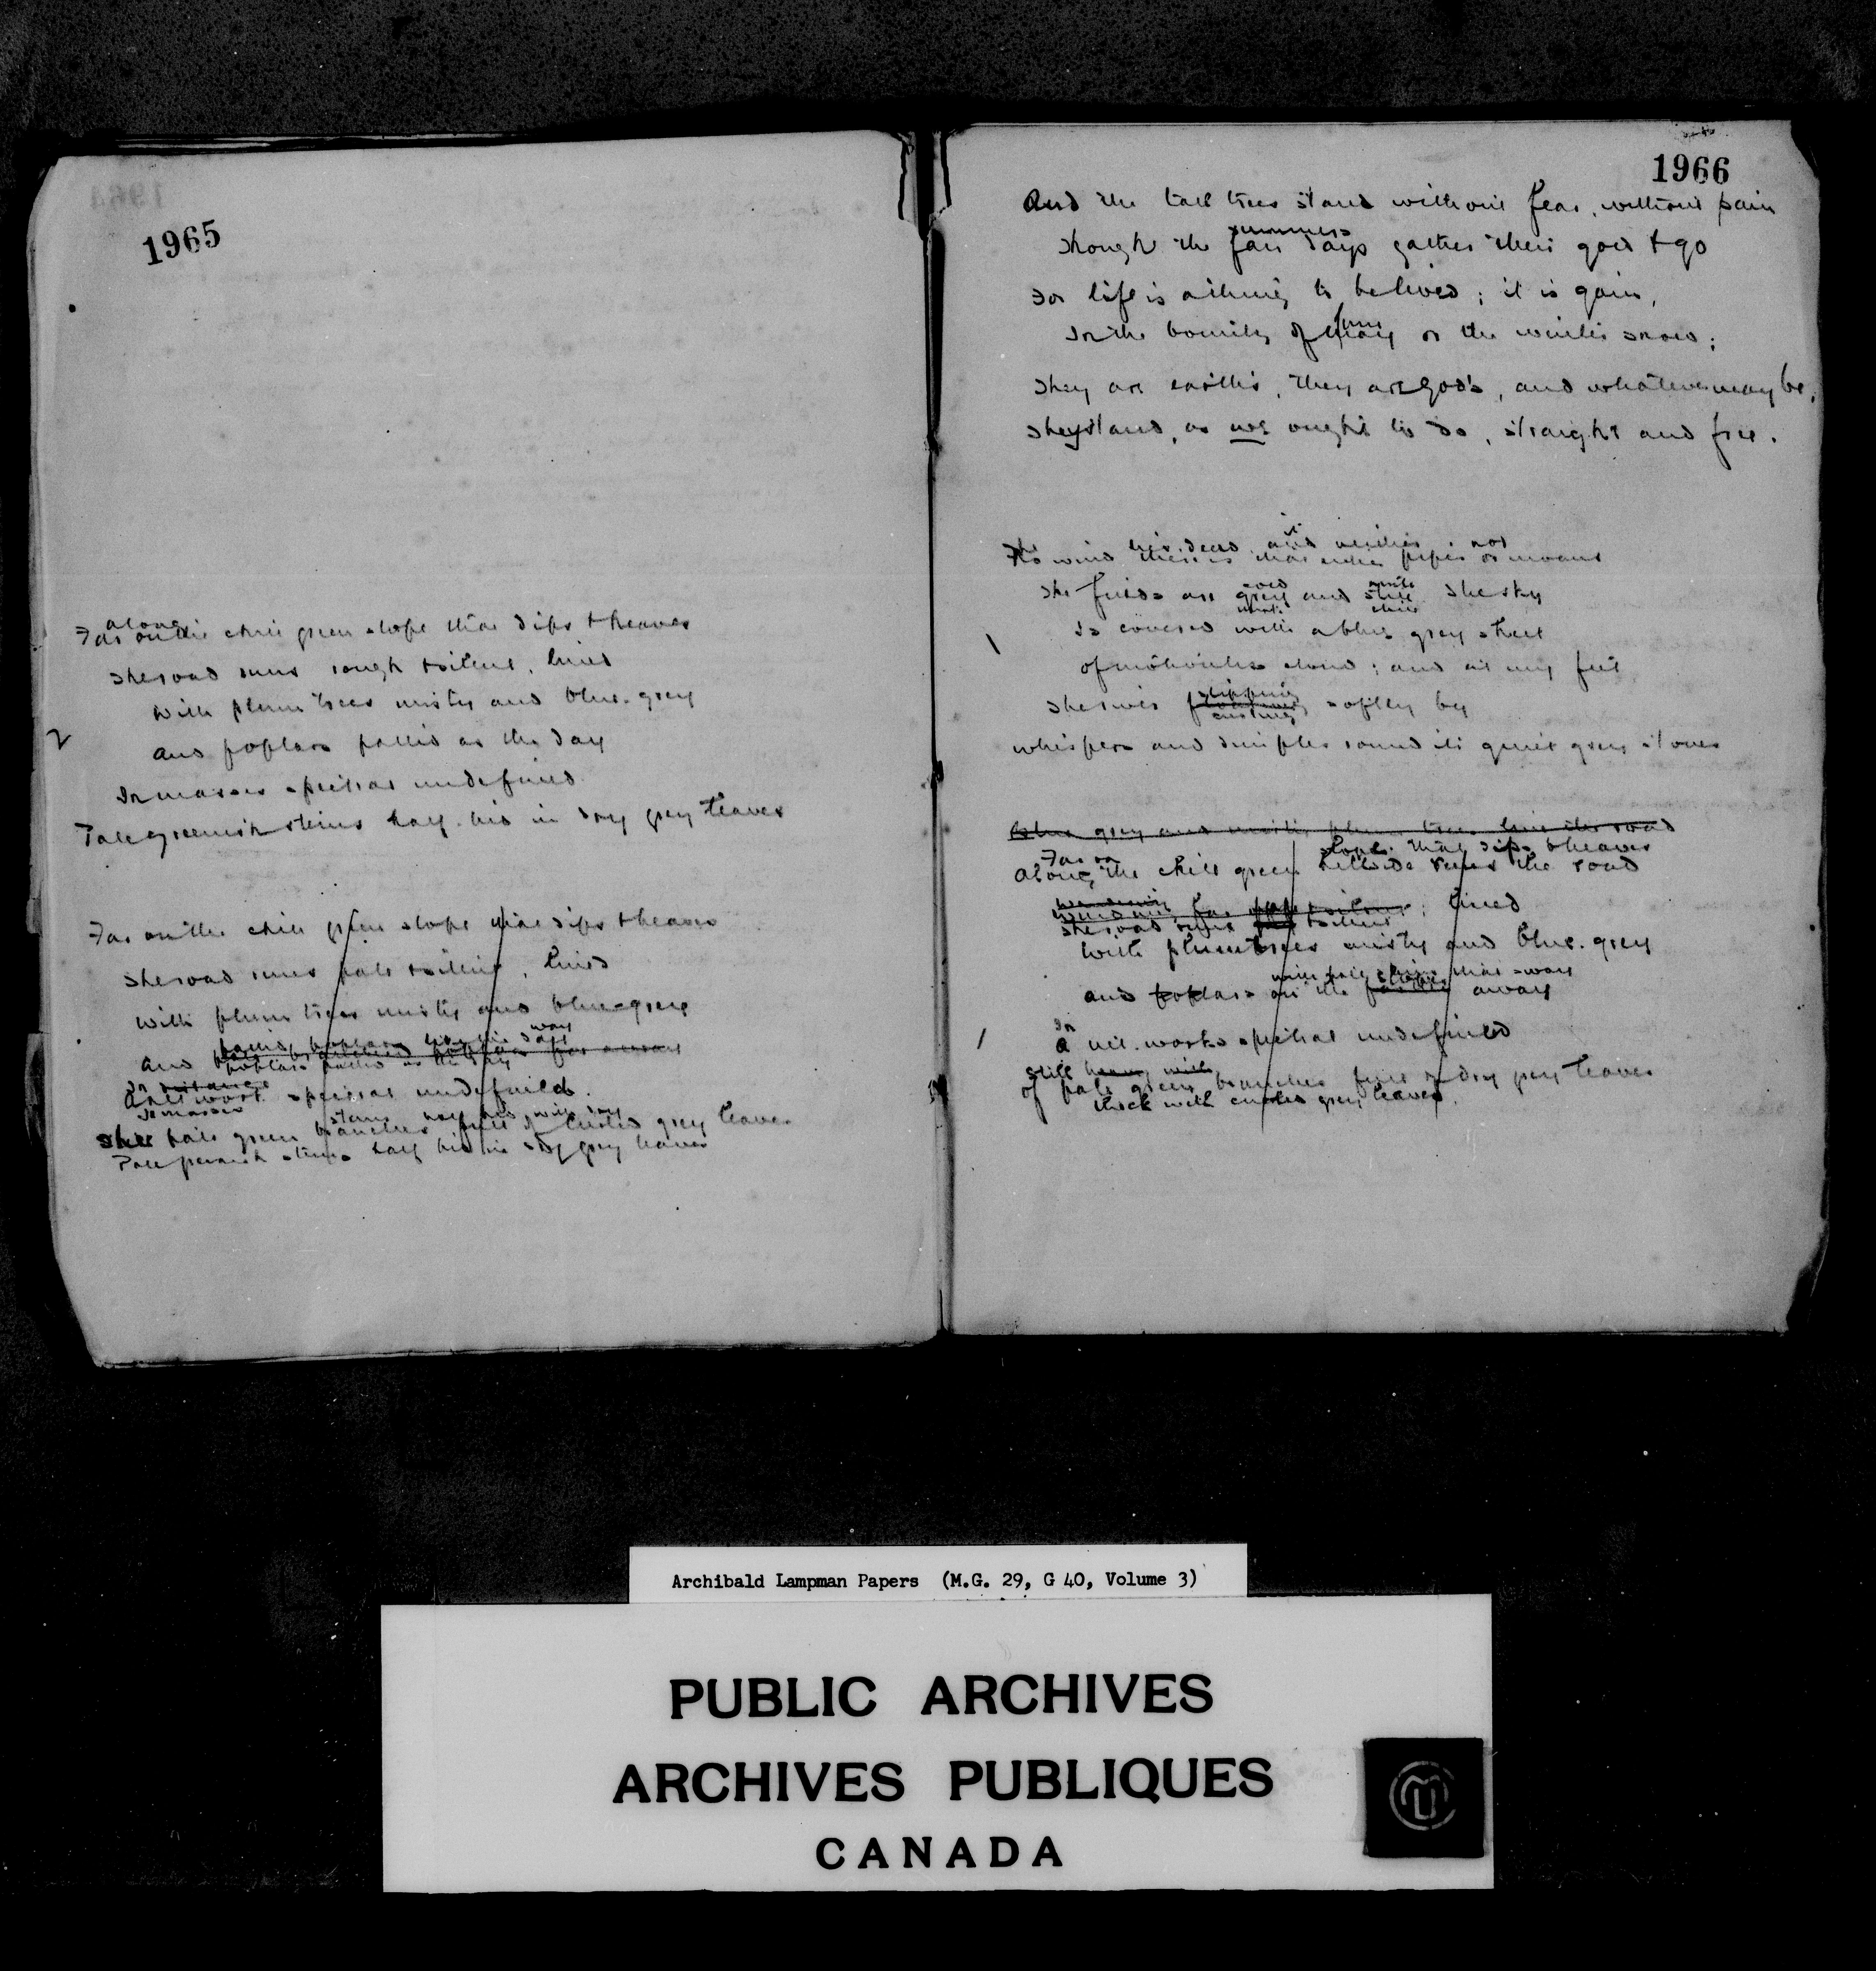 1965
along
Far on the chill green slope that dips & heaves
The road runs rough & silent, lined
With plum trees misty and blue-grey
And poplars pallid as the day
In masses spectral undefined
Pale greenish stems half hid in dry grey leaves
2
Far on the chill green slope that dips & heaves
The road runs pale & silent, lined
With plum trees misty and blue-grey
way
And
poplars pallid as the day
In distance
spectral undefined.
In masses
stems half hid with dry
pale green branches full of curled grey leaves
Pale greenish stems half hid in dry grey leaves
1966
And the tall trees stand without fear, without pain
summer
Though the fair days gather their gold & go
For life is a thing to be lived; it is gain,
June
In the bounty of May or the winter snow;
They are earth's, they are God's, and whatever may be,
They stand, as we ought to do, straight and free.
it
The wind there is that neither pipes or moans
The fields are grey and still The sky
Is covered with a blue grey sheet
1
Of motionless cloud; and at my feet
slipping
The river softly by
Whispers and dimples round its quiet grey stones
Blue grey and misty plum trees line the road
Far on slope that dips & heaves
Along the chill green hillside runs the road
lined
The road runs & silent
With plum trees misty and blue-grey
with pale that sway
and poplars away
1
In
A net-work spectral undefined
Still heavy with
Of pale green branches full of dry grey leaves
thick with curled grey leaves.
Archibald Lampman Papers (M.G. 29, G 40, Volume 3)
PUBLIC ARCHIVES
ARCHIVES PUBLIQUES
CANADA